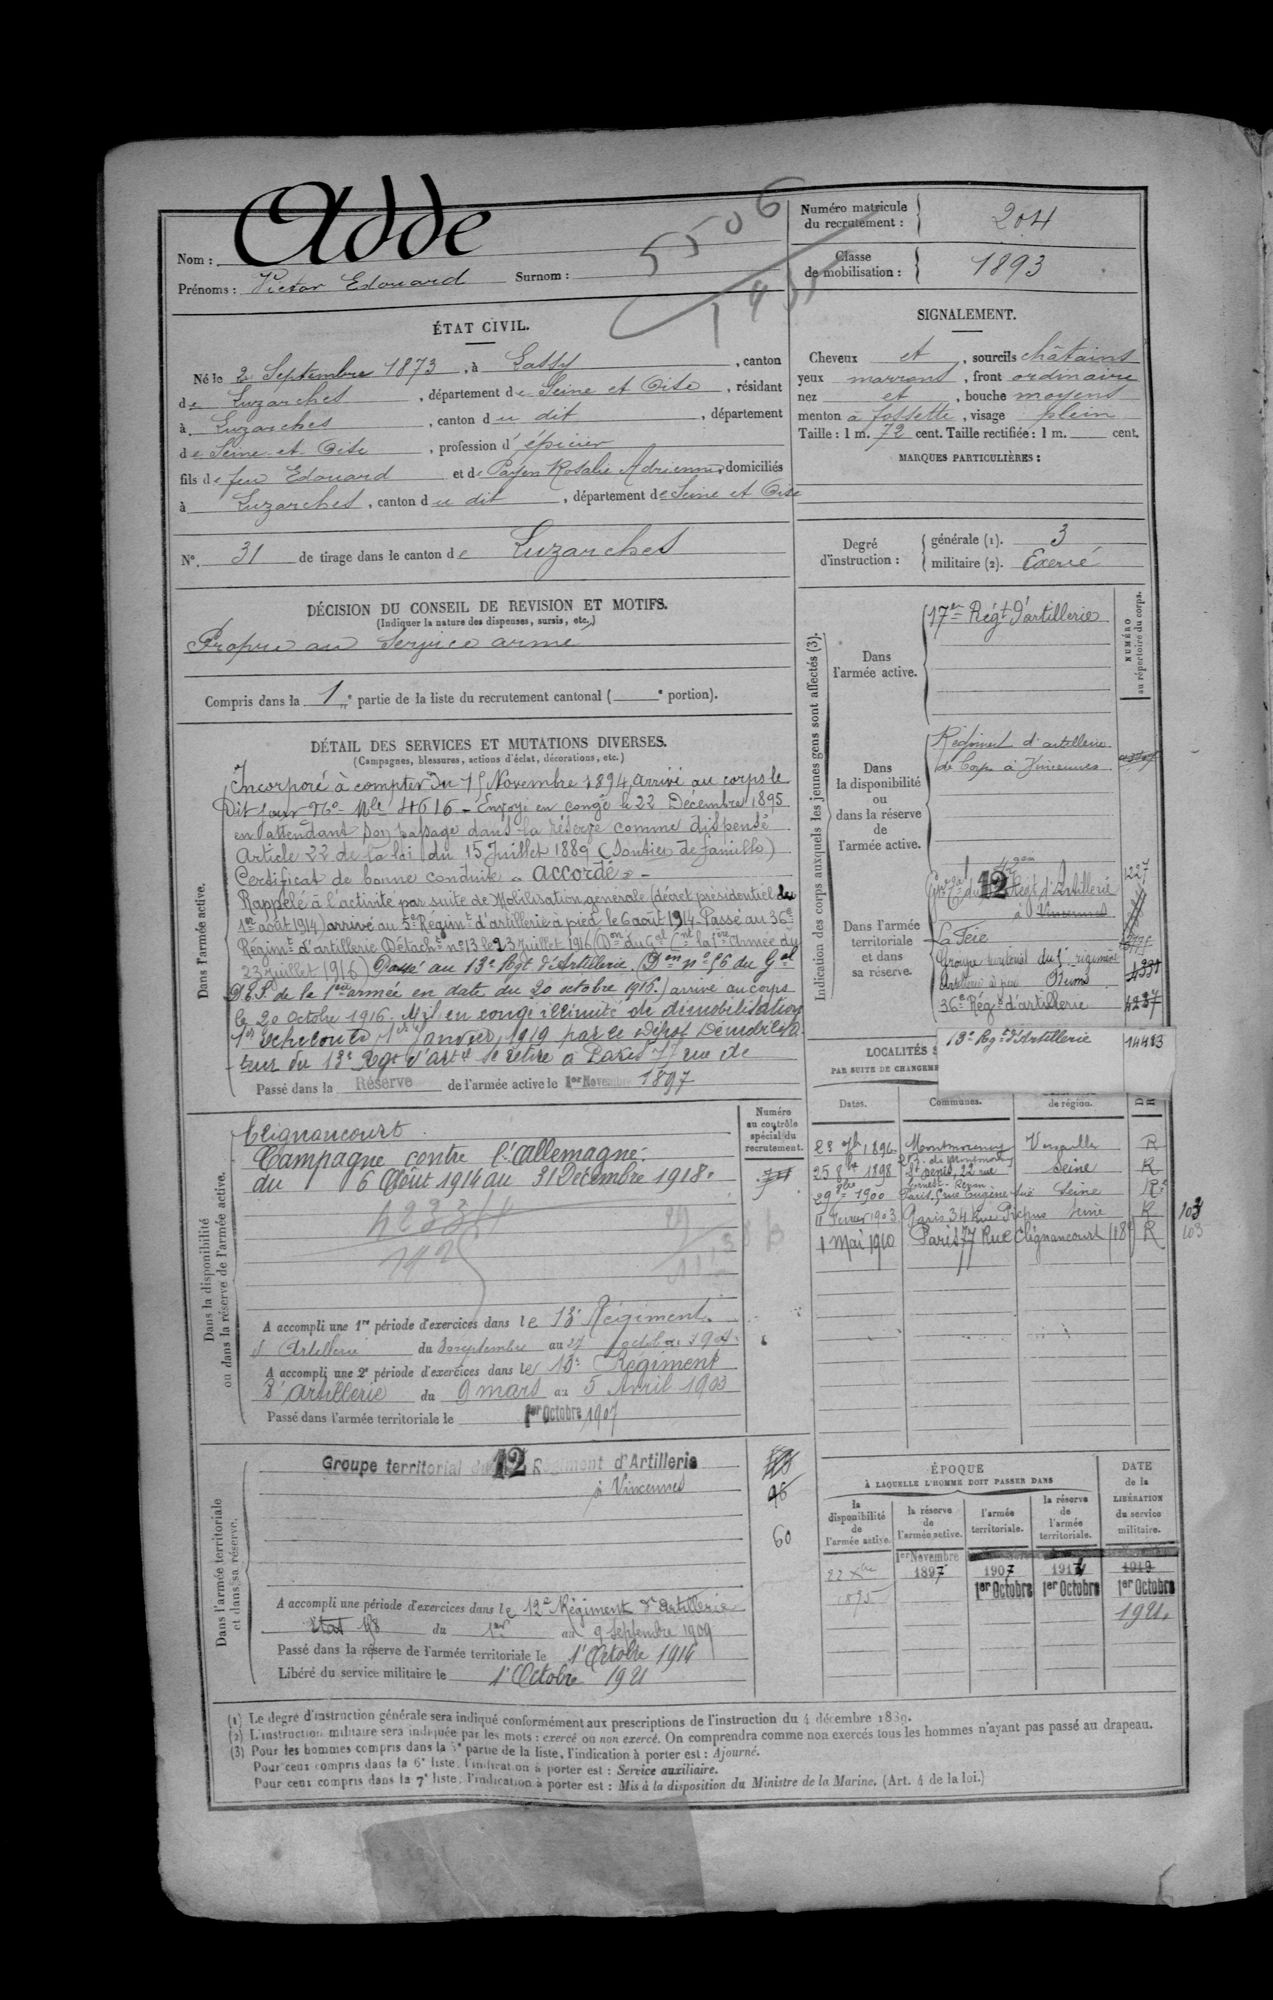 Nom : Adde
Prénoms : Victor Edouard Surnom :
5506
Numéro matricule du recrutement : 204
Classe de mobilisation : 1893
ÉTAT CIVIL.
Né le 2 Septembre 1873, à Lassy, canton
de Luzarches, département de Seine et Oise, résidant
à Luzarches, canton du dit, département
de Seine et Oise, profession d'épicier
fils de feu Edouard et de Payen Rosalie Adrienne, domiciliés
à Luzarches, canton du dit, département de Seine et Oise
N° 31 de tirage dans le canton de Luzarches
DÉCISION DU CONSEIL DE REVISION ET MOTIFS.
(Indiquer la nature des dispenses, sursis, etc.)
Propre au Service armé
Compris dans la 1re partie de la liste du recrutement cantonal ( e portion).
SIGNALEMENT.
Cheveux et, sourcils châtains
yeux marrons, front ordinaire
nez et, bouche moyens
menton à fossette, visage plein
Taille : 1 m. 72 cent. Taille rectifiée : 1 m. cent.
MARQUES PARTICULIÈRES :
Degré d'instruction :
générale (1). 3
militaire (2). Exercé
DÉTAIL DES SERVICES ET MUTATIONS DIVERSES.
(Campagnes, blessures, actions d'éclat, décorations, etc.)
Dans l'armée active.
Incorporé à compter du 15 Novembre 1894, arrivé au corps le
dit jour Mle 4616 - Envoyé en congé le 22 Décembre 1895
en attendant son passage dans la réserve comme dispensé
Article 22 de la loi du 15 Juillet 1889 (Soutien de famille)
Certificat de bonne conduite « accordé » -
Rappelé à l'activité par suite de Mobilisation générale (décret présidentiel du
1er août 1914) arrivé au 5e Régimt d'artillerie à pied le 6 août 1914. Passé au 36e
Régimt d'artillerie Détacht n° 13 le 23 juillet 1916 (Don du Gal Cnt la 1ère Armée du
23 juillet 1916) Passé au 13e Rgt d'Artillerie. (Don n° 56 du Gal
D.E.S. de la 1ère armée en date du 20 octobre 1916.) arrivé au corps
le 20 Octobre 1916. Mis en congé illimité de démobilisation
1er échelon le 1er Janvier 1919 par le Dépôt Démobilisa-
teur du 13e Regt d'artie se retire à Paris 77 rue de
Passé dans la Réserve de l'armée active le 1er Novembre 1897
Indication des corps auxquels les jeunes gens sont affectés (3).
NUMÉRO au répertoire du corps.
Dans l'armée active.
17e Régt d'artillerie
Dans la disponibilité ou dans la réserve de l'armée active.
Régiment d'artillerie
de Corps à Vincennes
Dans l'armée territoriale et dans sa réserve.
12 Régt d'Artillerie 1227
à Vincennes
La Fère
Groupe territorial du 5e régiment
Artillerie à pied 4331
36e Régt d'artillerie 4237
13e Rgt d'Artillerie 14483
LOCALITÉS
PAR SUITE DE CHANGEME
Dates. Communes. de région. D R
23 1896 Montmorency Versailles R
25 8bre 1898 St Denis, 22 rue Seine R
Ernest Renan
29 1900 Paris, 5 rue Eugène Sue Seine R
11 Février 1903 Paris 34 Rue Picpus Seine R 103
1 Mai 1910 Paris 77 Rue Clignancourt (18e) R 103
Dans la disponibilité ou dans la réserve de l'armée active.
Numéro au contrôle spécial du recrutement.
Clignancourt.
Campagne contre l'Allemagne.
du 6 Août 1914 au 31 Décembre 1918.
A accompli une 1re période d'exercices dans le 13e Régiment
d'Artillerie du septembre au 27 octobre
A accompli une 2e période d'exercices dans le 13e Régiment
d'Artillerie du 9 mars au 5 Avril 1903
Passé dans l'armée territoriale le 1er Octobre 1907
Dans l'armée territoriale et dans sa réserve.
Groupe territorial du 12 Régiment d'Artillerie
à Vincennes
60
A accompli une période d'exercices dans le 12e Régiment d'Artillerie
du 1er au 9 Septembre 1909
Passé dans la réserve de l'armée territoriale le 1er Octobre 1914
Libéré du service militaire le 1er Octobre 1921
ÉPOQUE
À LAQUELLE L'HOMME DOIT PASSER DANS
DATE de la LIBÉRATION du service militaire.
la disponibilité de l'armée active.
la réserve de l'armée active.
l'armée territoriale.
la réserve de l'armée territoriale.
22 Xbre 1895
1er Novembre 1897
1907 1er Octobre
1914 1er Octobre
1919 1er Octobre 1921
(1) Le degré d'instruction générale sera indiqué conformément aux prescriptions de l'instruction du 4 décembre 1889.
(2) L'instruction militaire sera indiquée par les mots : exercé ou non exercé. On comprendra comme non exercés tous les hommes n'ayant pas passé au drapeau.
(3) Pour les hommes compris dans la 5e partie de la liste, l'indication à porter est : Ajourné.
Pour ceux compris dans la 6e liste, l'indication à porter est : Service auxiliaire.
Pour ceux compris dans la 7e liste, l'indication à porter est : Mis à la disposition du Ministre de la Marine. (Art. 4 de la loi.)